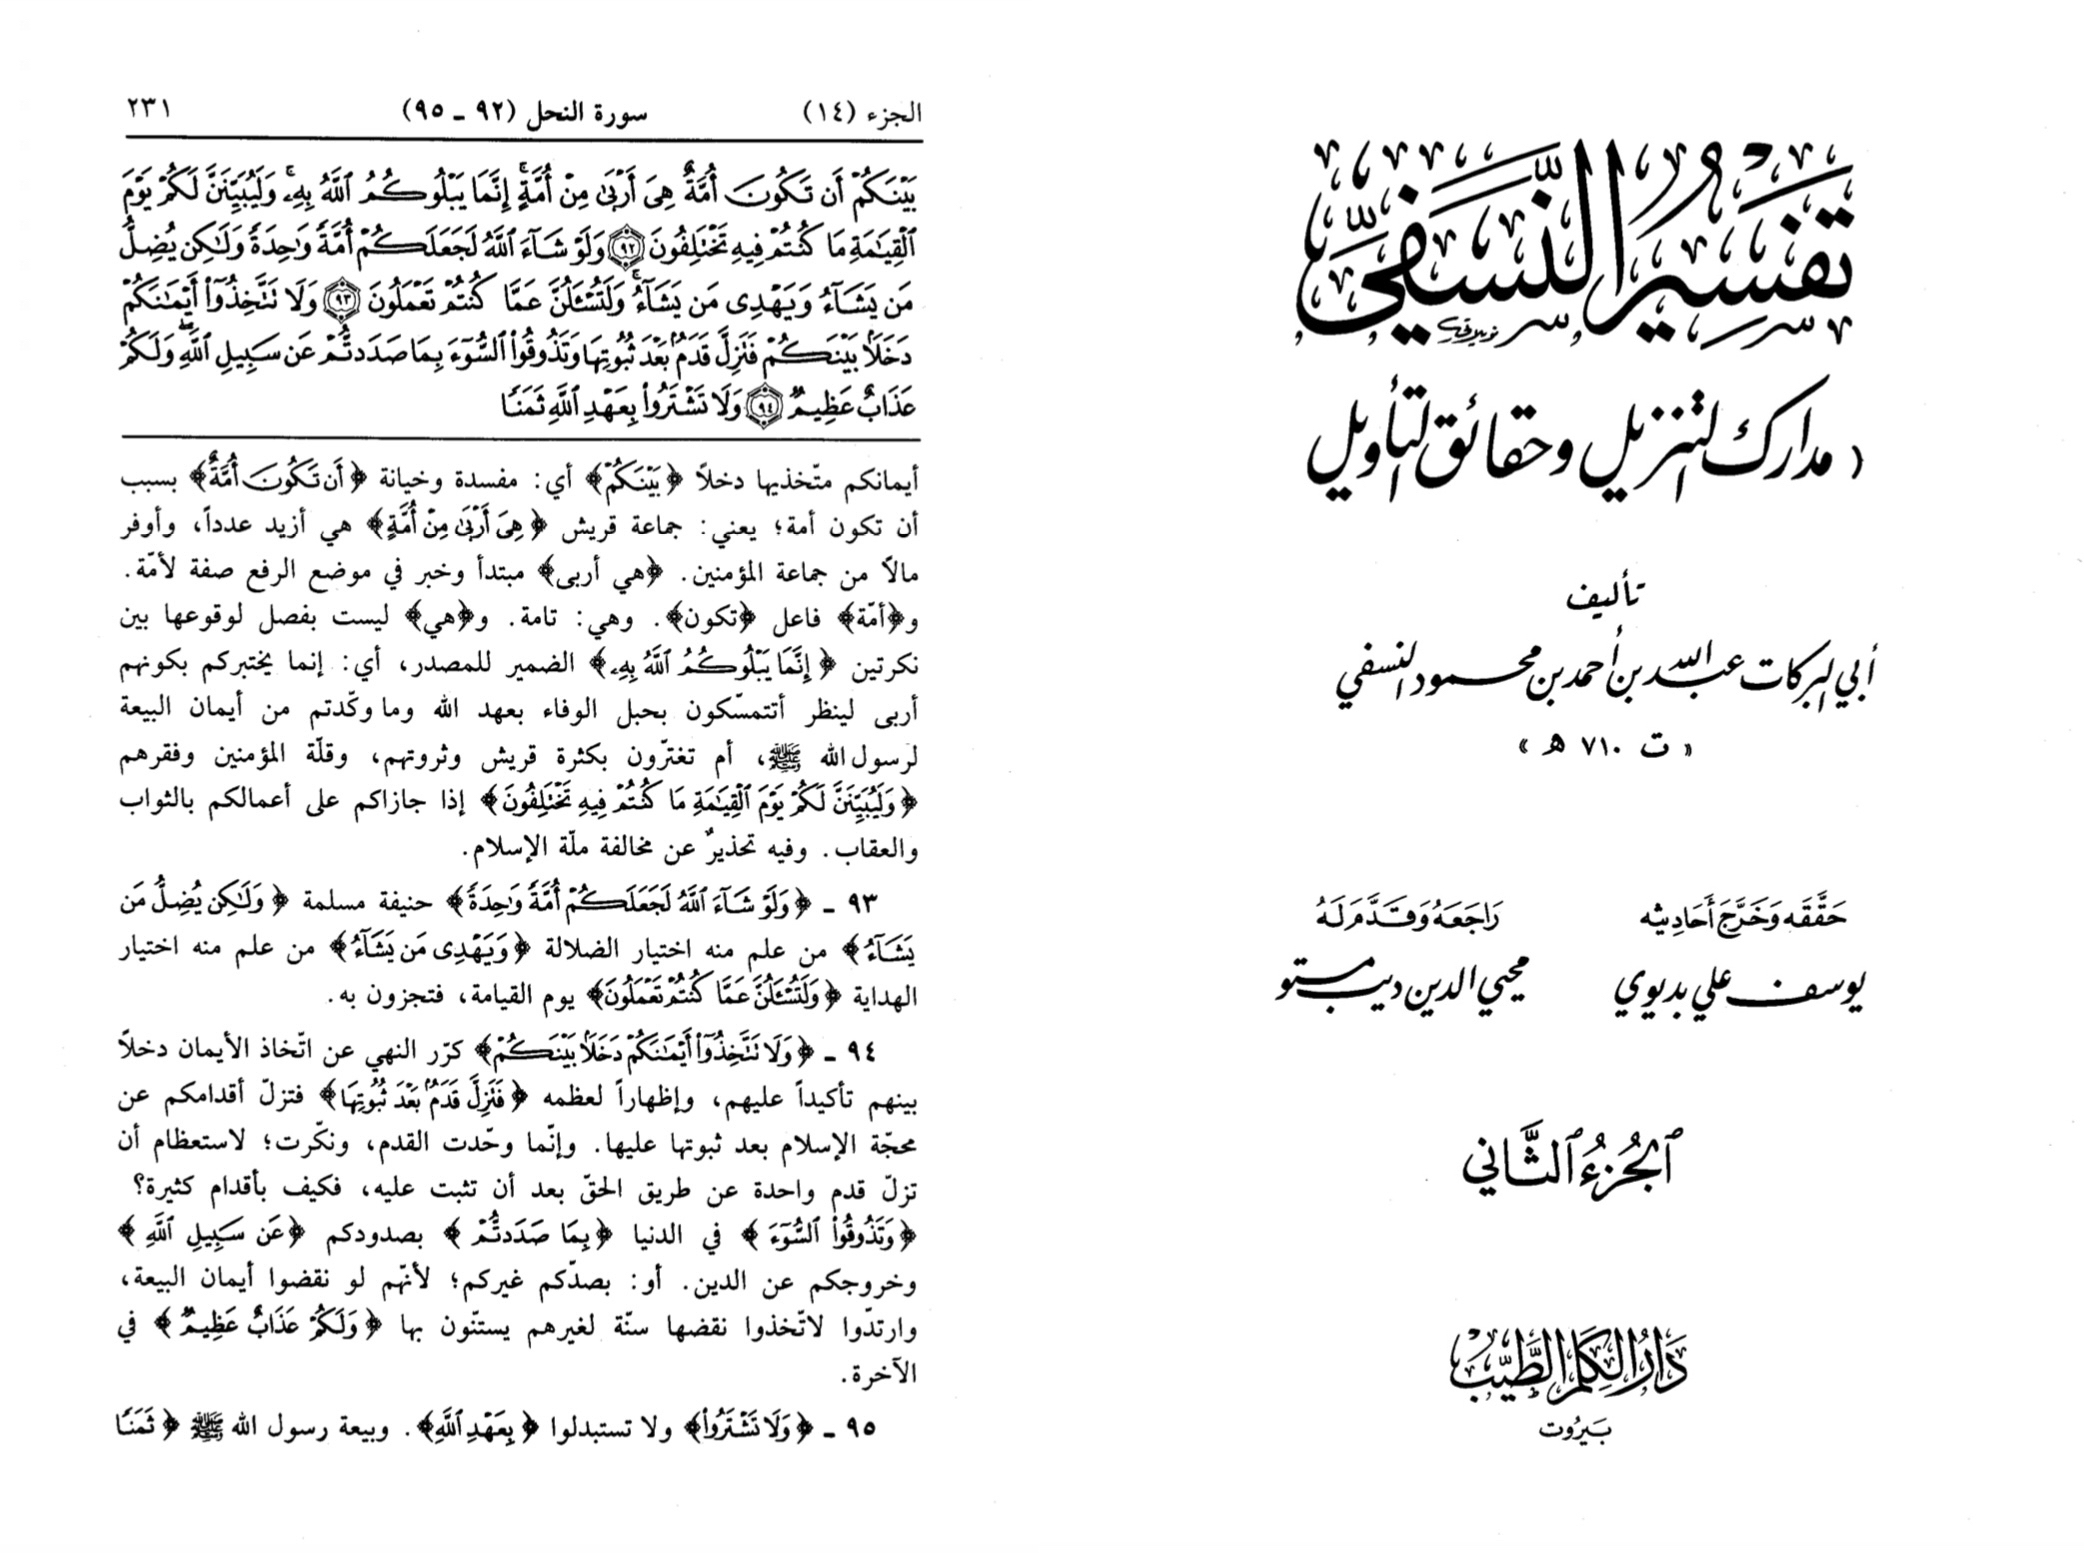 تَفسِير النَّسَفيّ
(مدارك التنزيل وحقائق التأويل
تأليف
أبي البركات عبد الله بن أحمد بن محمود النسفي
« ت ٧١٠ هـ »
حَقَّقَه وَخَرَّجَ أَحَاديثه
يوسف علي بديوي
رَاجَعَهُ وَقَدَّمَ لَهُ
محيي الدين ديب مستو
الجُزءُ الثَّاني
دَارُ الكَلِمِ الطَّيِّب
بَيرُوت
الجزء (١٤) سورة النحل (٩٢ ـ ٩٥) ٢٣١
بَيْنَكُمْ أَن تَكُونَ أُمَّةٌ هِىَ أَرْبَىٰ مِنْ أُمَّةٍ ۚ إِنَّمَا يَبْلُوكُمُ ٱللَّهُ بِهِۦ ۚ وَلَيُبَيِّنَنَّ لَكُمْ يَوْمَ
ٱلْقِيَٰمَةِ مَا كُنتُمْ فِيهِ تَخْتَلِفُونَ ﴿٩٢﴾ وَلَوْ شَآءَ ٱللَّهُ لَجَعَلَكُمْ أُمَّةً وَٰحِدَةً وَلَٰكِن يُضِلُّ
مَن يَشَآءُ وَيَهْدِى مَن يَشَآءُ ۚ وَلَتُسْـَٔلُنَّ عَمَّا كُنتُمْ تَعْمَلُونَ ﴿٩٣﴾ وَلَا تَتَّخِذُوٓا۟ أَيْمَٰنَكُمْ
دَخَلًۢا بَيْنَكُمْ فَتَزِلَّ قَدَمٌۢ بَعْدَ ثُبُوتِهَا وَتَذُوقُوا۟ ٱلسُّوٓءَ بِمَا صَدَدتُّمْ عَن سَبِيلِ ٱللَّهِ ۖ وَلَكُمْ
عَذَابٌ عَظِيمٌ ﴿٩٤﴾ وَلَا تَشْتَرُوا۟ بِعَهْدِ ٱللَّهِ ثَمَنًا
أيمانكم متّخذيها دخلاً ﴿بَيْنَكُمْ﴾ أي: مفسدة وخيانة ﴿أَن تَكُونَ أُمَّةٌ﴾ بسبب
أن تكون أمة؛ يعني: جماعة قريش ﴿هِىَ أَرْبَىٰ مِنْ أُمَّةٍ﴾ هي أزيد عدداً، وأوفر
مالاً من جماعة المؤمنين. ﴿هي أربى﴾ مبتدأ وخبر في موضع الرفع صفة لأمّة.
و﴿أمّة﴾ فاعل ﴿تكون﴾. وهي: تامة. و﴿هي﴾ ليست بفصل لوقوعها بين
نكرتين ﴿إِنَّمَا يَبْلُوكُمُ ٱللَّهُ بِهِۦ﴾ الضمير للمصدر، أي: إنما يختبركم بكونهم
أربى لينظر أتتمسّكون بحبل الوفاء بعهد الله وما وكّدتم من أيمان البيعة
لرسول الله ﷺ، أم تغترّون بكثرة قريش وثروتهم، وقلّة المؤمنين وفقرهم
﴿وَلَيُبَيِّنَنَّ لَكُمْ يَوْمَ ٱلْقِيَٰمَةِ مَا كُنتُمْ فِيهِ تَخْتَلِفُونَ﴾ إذا جازاكم على أعمالكم بالثواب
والعقاب. وفيه تحذيرٌ عن مخالفة ملّة الإسلام.
٩٣ ـ ﴿وَلَوْ شَآءَ ٱللَّهُ لَجَعَلَكُمْ أُمَّةً وَٰحِدَةً﴾ حنيفة مسلمة ﴿وَلَٰكِن يُضِلُّ مَن
يَشَآءُ﴾ من علم منه اختيار الضلالة ﴿وَيَهْدِى مَن يَشَآءُ﴾ من علم منه اختيار
الهداية ﴿وَلَتُسْـَٔلُنَّ عَمَّا كُنتُمْ تَعْمَلُونَ﴾ يوم القيامة، فتجزون به.
٩٤ ـ ﴿وَلَا تَتَّخِذُوٓا۟ أَيْمَٰنَكُمْ دَخَلًۢا بَيْنَكُمْ﴾ كرّر النهي عن اتّخاذ الأيمان دخلاً
بينهم تأكيداً عليهم، وإظهاراً لعظمه ﴿فَتَزِلَّ قَدَمٌۢ بَعْدَ ثُبُوتِهَا﴾ فتزلّ أقدامكم عن
محجّة الإسلام بعد ثبوتها عليها. وإنّما وحّدت القدم، ونكّرت؛ لاستعظام أن
تزلّ قدم واحدة عن طريق الحقّ بعد أن تثبت عليه، فكيف بأقدام كثيرة؟
﴿وَتَذُوقُوا۟ ٱلسُّوٓءَ﴾ في الدنيا ﴿بِمَا صَدَدتُّمْ﴾ بصدودكم ﴿عَن سَبِيلِ ٱللَّهِ﴾
وخروجكم عن الدين. أو: بصدّكم غيركم؛ لأنّهم لو نقضوا أيمان البيعة،
وارتدّوا لاتّخذوا نقضها سنّة لغيرهم يستنّون بها ﴿وَلَكُمْ عَذَابٌ عَظِيمٌ﴾ في
الآخرة.
٩٥ ـ ﴿وَلَا تَشْتَرُوا۟﴾ ولا تستبدلوا ﴿بِعَهْدِ ٱللَّهِ﴾. وبيعة رسول الله ﷺ ﴿ثَمَنًا